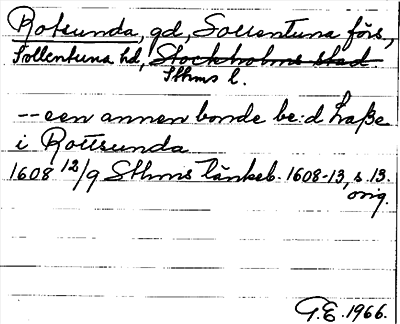 Rotsunda, gd, Sollentuna förs,
Sollentuna hd, Stockholms stad
Sthms l.
-- een annen bonde be:d Laße
i Rottsunda
1608 12/9 Sthms tänkeb. 1608-13, s. 13.
orig.
G.E. 1966.